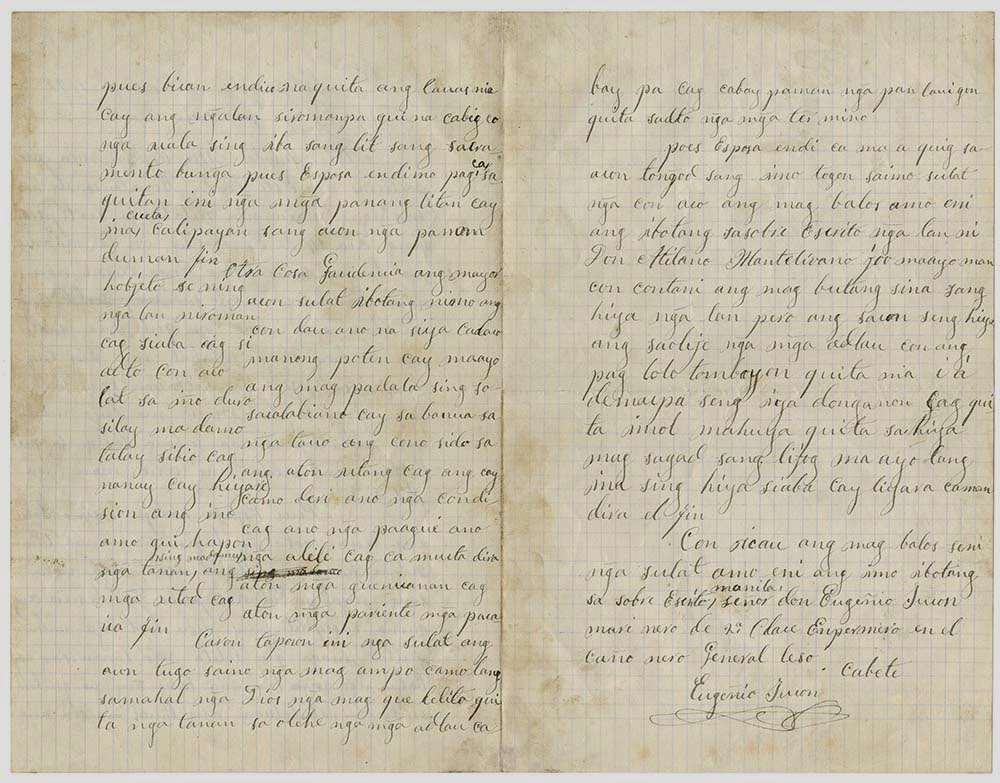 pues bisan endico naquita ang lauas nia
cay ang ngalan siromanpa qui na cabig co
nga uala sing iba sang lit sang sacra
mento bunga pues Esposa endimo pag ca sa
quitan ini nga mga panang litan cay
imo cueta, calipayan sang acon nga panum
duman fin
otra Cosa Gaudencia ang mayor
hobjeto se ning
acon sulat ibotang nimo ang
nga lan niroman
con dau ano na siya cadau
cag siaba cag si
manong poten cay maayo
adto con aco
ang mag padala sing so
lat sa imo duro
sacalabiano cay sa banua sa
silay madamo
nga tauo ang cono sido sa
talay sibio cag
ang aton utang cag ang cay
nanay cay hiyari
camo deri ano nga condi
sion ang imo
cag ano nga paagui ano
amo qui hapon
nga alelé cag ca mueta dira
nga tanan, ang sing madamu,
aton mga guinicanan cag
mga utod cag
aton mga pariente mga paca
isa fin
Caron taposon ini nga sulat ang
acon tugo saimo nga mag ampo camo lang
samahal nga Dios nga mag que lelito qui
ta nga tanan sa olehe nga mga adlau ca
bay pa cag cabay paman nga pan laui gon
quita sadto nga mga termino
poes Esposa endi ca ma a quig sa
acon tongod sang imo togon saimo sulat
nga con aco ang mag balos amo eni
ang ibotang sasobre Escrito nga lan ni
Don Atilano Mantelivano joo maayo man
con contani ang mag butang sina sang
hiya nga lan pero ang sacon seng hiya
ang saolije nga mga adlau con ang
pag tolo tomboyon quita nia i á
demaipa seng nga donganon cag qui
ta imol mahuya quita sa hiya
mag sugad sang lifog ma ayo lang
ina sing hiya siaba cay ligara caman
dira el fin
Con icau ang mag balos seni
nga sulat amo eni ang imo ibotang
sa sobre Escrito, manila, señor don Eugeñio Juson
mari nero de 2ª Clace Enpermero en el
caño nero General leso. Cabete
Eugeñio Juson